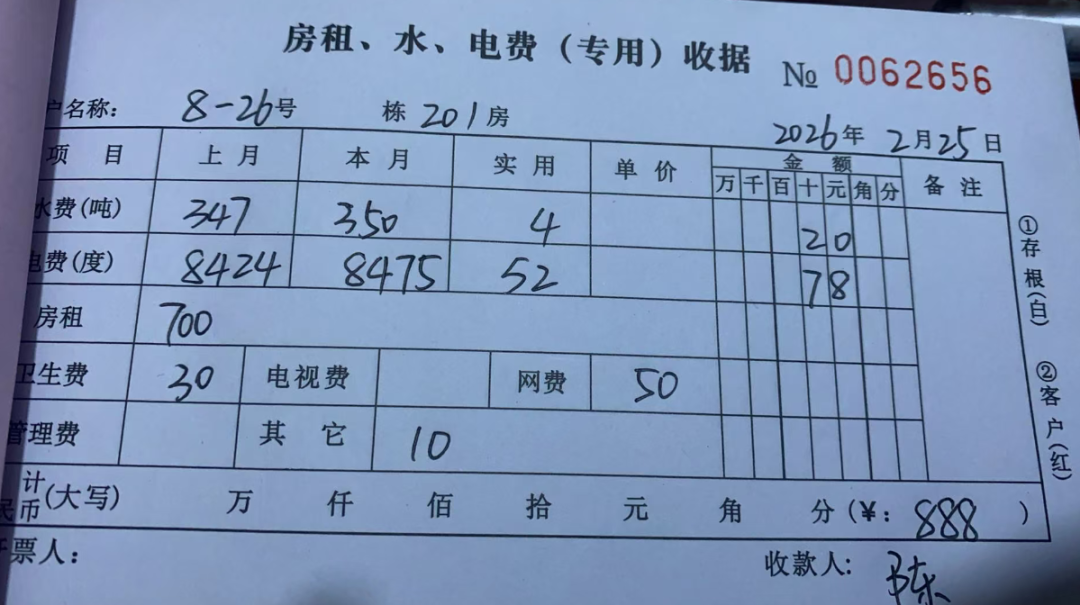 房租、水、电费（专用）收据 № 0062656
户名称： 8-26号 栋 201房
2026年 2月25日
项 目 上 月 本 月 实 用 单 价 金 额 备 注
万 千 百 十 元 角 分
水费(吨) 347 350 4 20
电费(度) 8424 8475 52 78
房租 700
卫生费 30 电视费 网费 50
管理费 其 它 10
计 民币(大写) 万 仟 佰 拾 元 角 分(¥: 888 )
开票人： 收款人: 陈
①存根(白) ②客户(红)